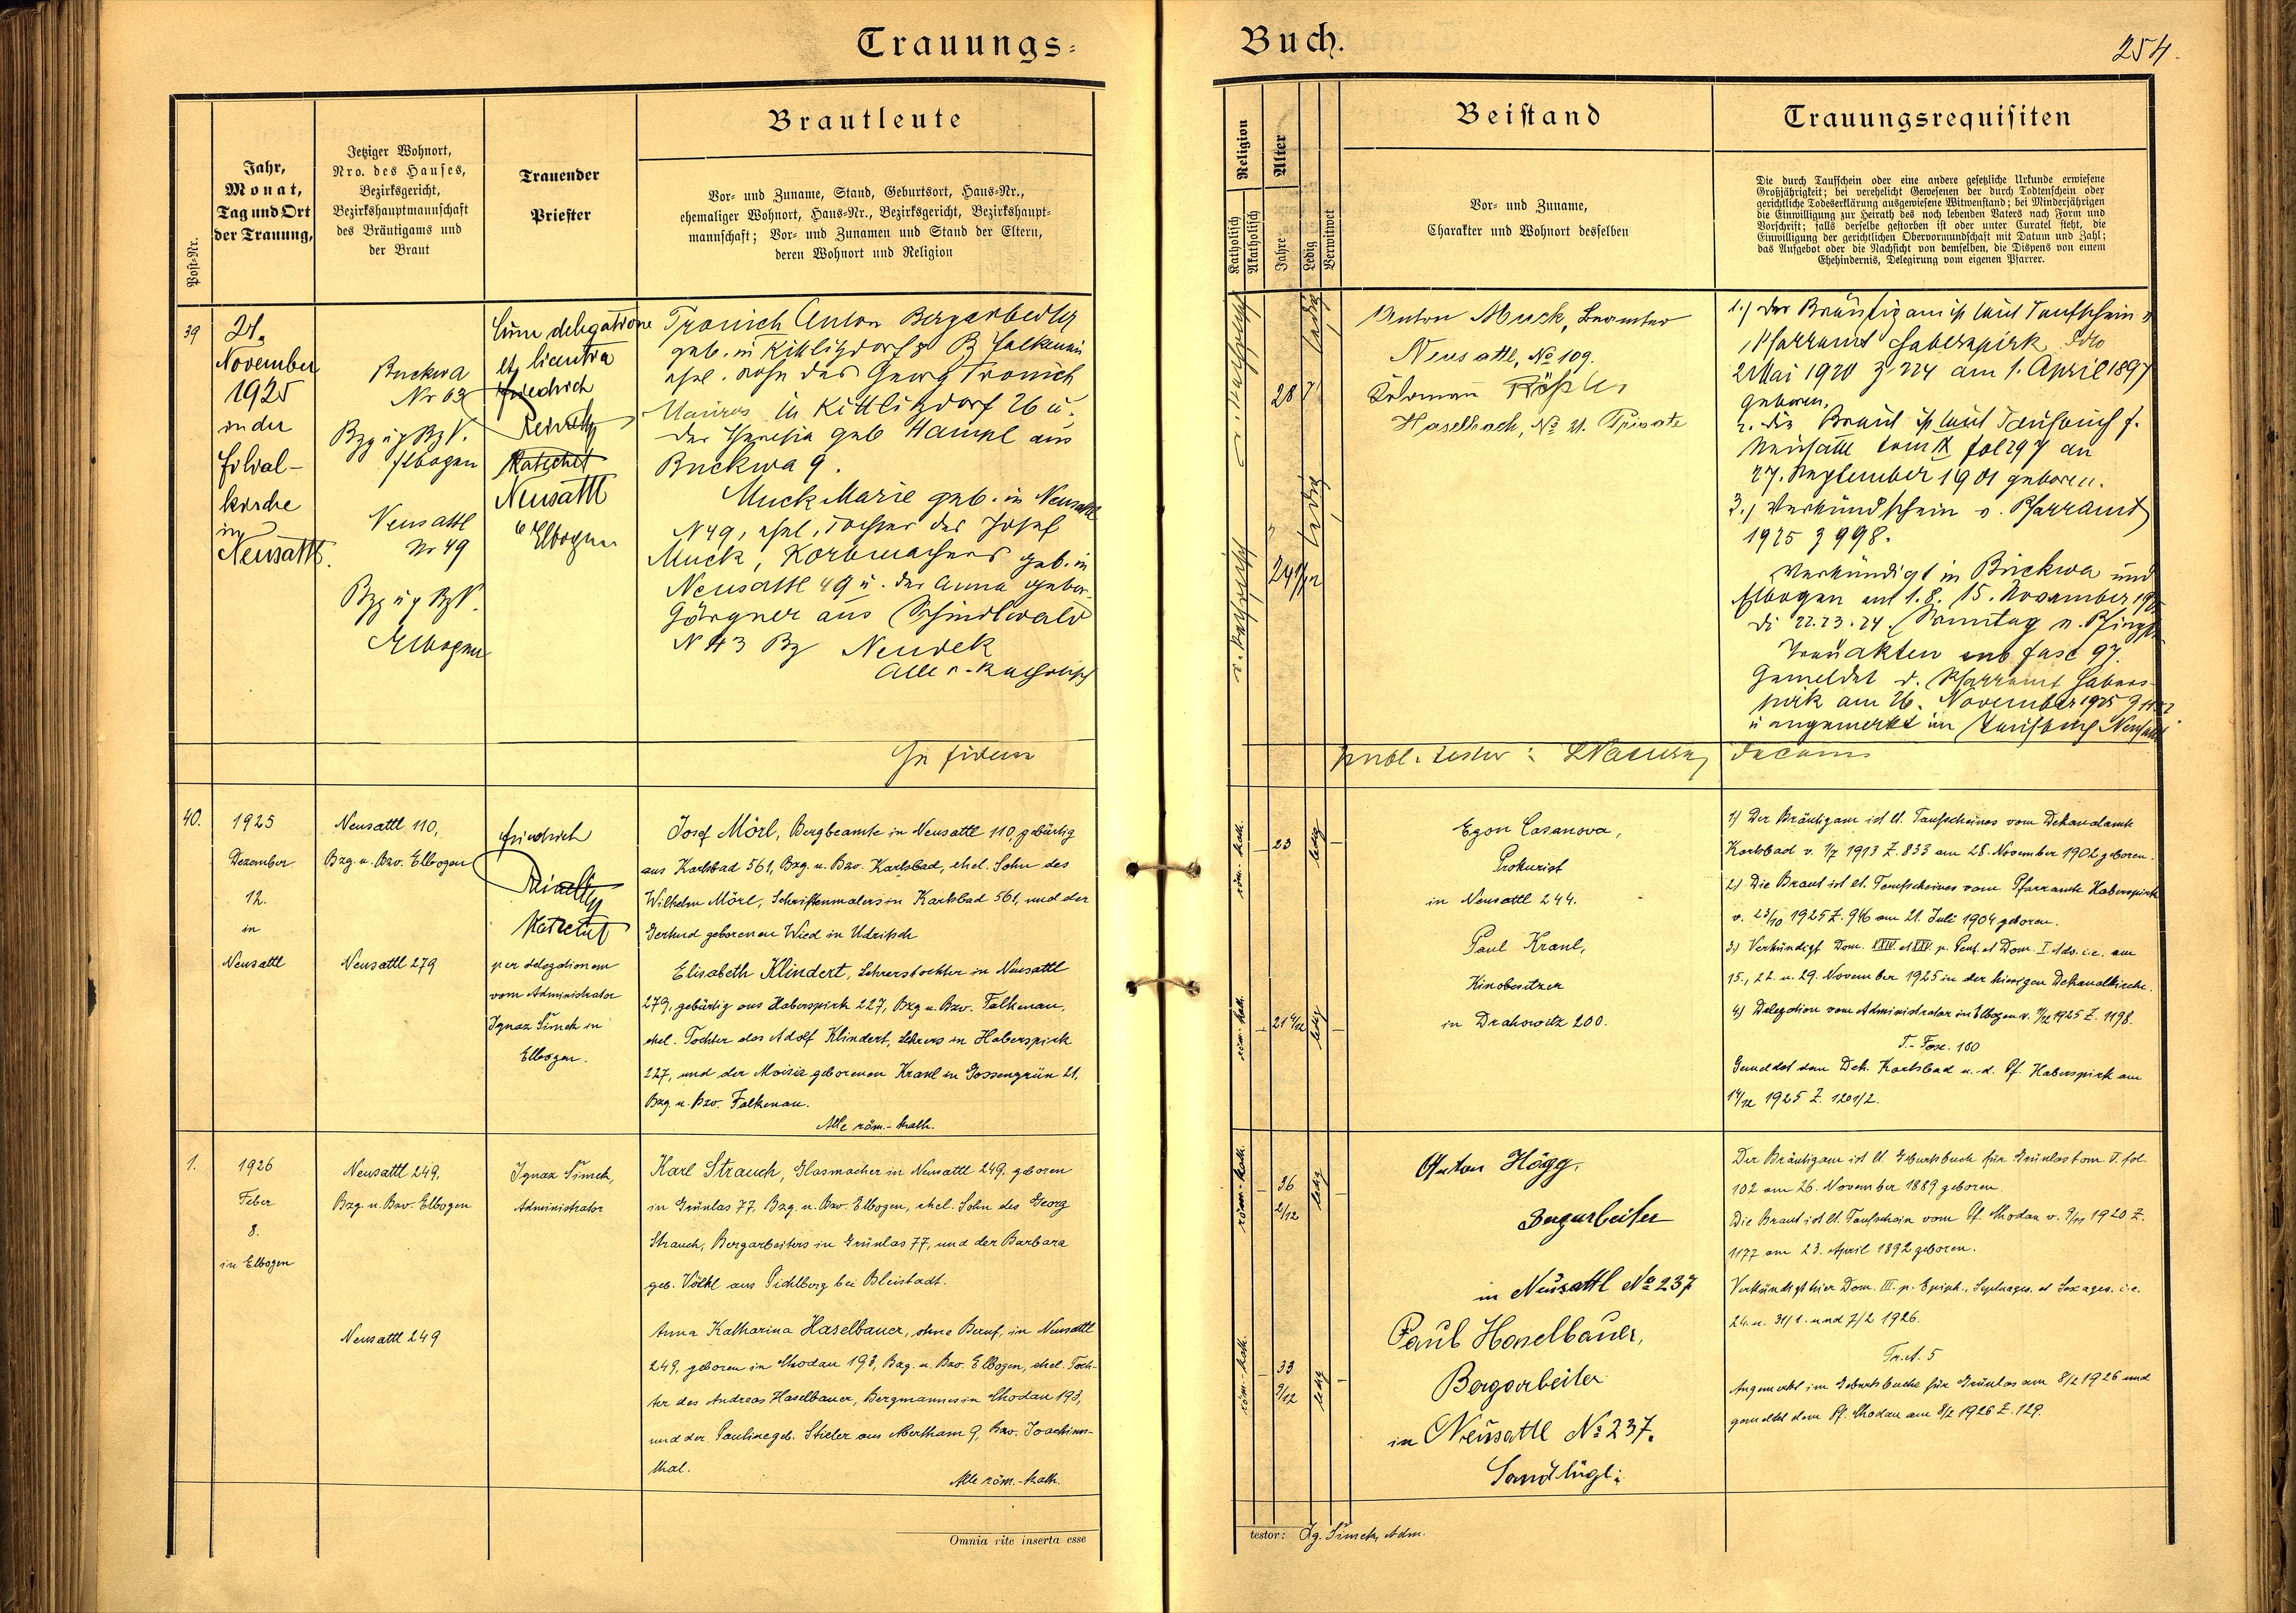 Trauungs-
Buch.
254.
Post-Nr.
Jahr,
Monat,
Tag und Ort
der Trauung,
Jetziger Wohnort,
Nro. des Hauses,
Bezirksgericht,
Bezirkshauptmannschaft
des Bräutigams und
der Braut
Trauender
Priester
Brautleute
Vor- und Zuname, Stand, Geburtsort, Haus-Nr.,
ehemaliger Wohnort, Haus-Nr., Bezirksgericht, Bezirkshaupt-
mannschaft; Vor- und Zunamen und Stand der Eltern,
deren Wohnort und Religion
Religion
Katholisch
Akatholisch
Alter
Jahre
Ledig
Verwitwet
Beistand
Vor- und Zuname,
Charakter und Wohnort desselben
Trauungsrequisiten
Die durch Taufschein oder eine andere gesetzliche Urkunde erwiesene
Großjährigkeit; bei verehelicht Gewesenen der durch Todtenschein oder
gerichtliche Todeserklärung ausgewiesene Witwenstand; bei Minderjährigen
die Einwilligung zur Heirath des noch lebenden Vaters nach Form und
Vorschrift; falls derselbe gestorben ist oder unter Curatel steht, die
Einwilligung der gerichtlichen Obervormundschaft mit Datum und Zahl;
das Aufgebot oder die Nachsicht von demselben, die Dispens von einem
Ehehindernis, Delegirung vom eigenen Pfarrer.
39
November
1925
in der
Filial-
kirche
in
Neusattl.
Buckwa
Nr 63
Elbogen
Neusattl
Nr 49
Elbogen
Cum delegatione
et licentia
Friedrich
Neusattl
Elbogen
Tronich Anton Bergarbeiter
geb. in Kittlitzdorf 8 B Falkenau
ehel. Sohn des Georg Tronich
Maurers in Kittlitzdorf 26 u.
der Theresia geb Hampl aus
Buckwa 9.
Muck Marie geb. in Neusattl
N 49, ehel. Tochter des Josef
Muck, Korbmachers geb. in
Neusattl 49 u. der Anna gebor.
Görgner aus Schindlwald
N 43 Bz Neudek
Alle r.-katholisch
28
ledig
ledig
Anton Muck, Beamter
Neusattl, No 109.
Haselbach, No 21. Private
1.) Der Bräutigam ist laut Taufschein v
Pfarramt Haberspirk ddo
2 Mai 1920 Z 224 am 1. April 1897
geboren.
2. Die Braut ist laut Taufbuch f.
Neusattl tom IX fol 297 am
27. September 1901 geboren.
3.) Verkündschein v. Pfarramt
1925 Z 998.
Verkündigt in Buckwa und
Elbogen am 1. 8. 15. November
di 22. 23. 24. Sonntag n. Pfingst
Trauakten sub fasc 97.
Gemeldet d. Pfarramt Habers-
pirk am 26. November 1925
u angemerkt im Taufbuch Neusattl
In fidem
decan
40.
1925
Dezember
12.
in
Neusattl
Neusattl 110,
Bzg. u. Bzv. Elbogen
Neusattl 279
Friedrich
per delegationem
vom Administrator
Ignaz Šimek in
Elbogen.
Josef Mörl, Bergbeamte in Neusattl 110 gebürtig
aus Karlsbad 561, Bzg. u. Bzv. Karlsbad, ehel. Sohn des
Wilhelm Mörl, Schriftenmalers in Karlsbad 561, und der
Gertrud geborenen Wied in Udritsch
Elisabeth Klindert, Lehrerstochter in Neusattl
279, gebürtig aus Haberspirk 227, Bzg. u. Bzv. Falkenau,
ehel. Tochter des Adolf Klindert, Lehrers in Haberspirk
227, und der Maria geborenen Kranl in Gossengrün 21,
Bzg. u. Bzv. Falkenau.
Alle röm.-kath.
röm. kath.
23
ledig
röm-kath.
21 4/12
ledig
Egon Casanova,
Prokurist
in Neusattl 244.
Paul Kranl,
Kinobesitzer
in Drahowitz 200.
1) Der Bräutigam ist lt. Taufscheines vom Dekanalamte
Karlsbad v. 1/7 1913 Z. 833 am 28. November 1902 geboren.
2) Die Braut ist lt. Taufscheines vom Pfarramte Haberspirk
v. 23/10 1925 Z. 946 am 21. Juli 1904 geboren.
3.) Verkündigt Dom. XXIV et XXV p. Pent. et Dom. I. Adv. i.e. am
15., 22. u. 29. November 1925 in der hiesigen Dekanalkirche.
4) Delegation vom Administrator in Elbogen v. 11/12 1925 Z. 1198.
T.- Fasc. 100
Gemeldet dem Dek. Karlsbad u. d. Pf. Haberspirk am
14/12 1925 Z. 1201/2.
1.
1926
Feber
8.
in Elbogen
Neusattl 249,
Bzg. u. Bzv. Elbogen
Neusattl 249
Ignaz Šimek,
Administrator
Karl Strauch, Glasmacher in Neusattl 249, geboren
in Grünlas 77, Bzg. u. Bzv. Elbogen, ehel. Sohn des Georg
Strauch, Bergarbeiters in Grünlas 77, und der Barbara
geb. Völkl aus Pichlberg bei Bleistadt.
Anna Katharina Haselbauer, ohne Beruf, in Neusattl
249, geboren in Chodau 193, Bzg. u. Bzv. Elbogen, ehel. Toch-
ter des Andreas Haselbauer, Bergmannes in Chodau 193,
und der Pauline geb. Stieler aus Abertham 9, Bzv. Joachims-
thal.
Alle röm.-kath.
röm-kath.
36
2/12
ledig
röm.-kath.
33
9/12
ledig
Anton Högg,
Bergarbeiter
in Neusattl No 237
Paul Haselbauer,
Bergarbeiter
in Neusattl No 237.
Der Bräutigam ist lt. Geburtsbuch für Grünlas tom V. fol.
102 am 26. November 1889 geboren.
Die Braut ist lt. Taufschein vom Pf. Chodau v. 9/11 1920 Z.
1177 am 23. April 1892 geboren.
Verkündigt hier Dom. III. p. Epiph., Septuages. et Sexages. i.e.
24. u. 31/1. und 7/2 1926.
Tr.A. 5
Angemerkt im Geburtsbuche für Grünlas am 8/2 1926 und
gemeldet dem Pf. Chodau am 8/2 1926 Z. 129.
Omnia rite inserta esse
testor: Ig. Šimek, Adm.